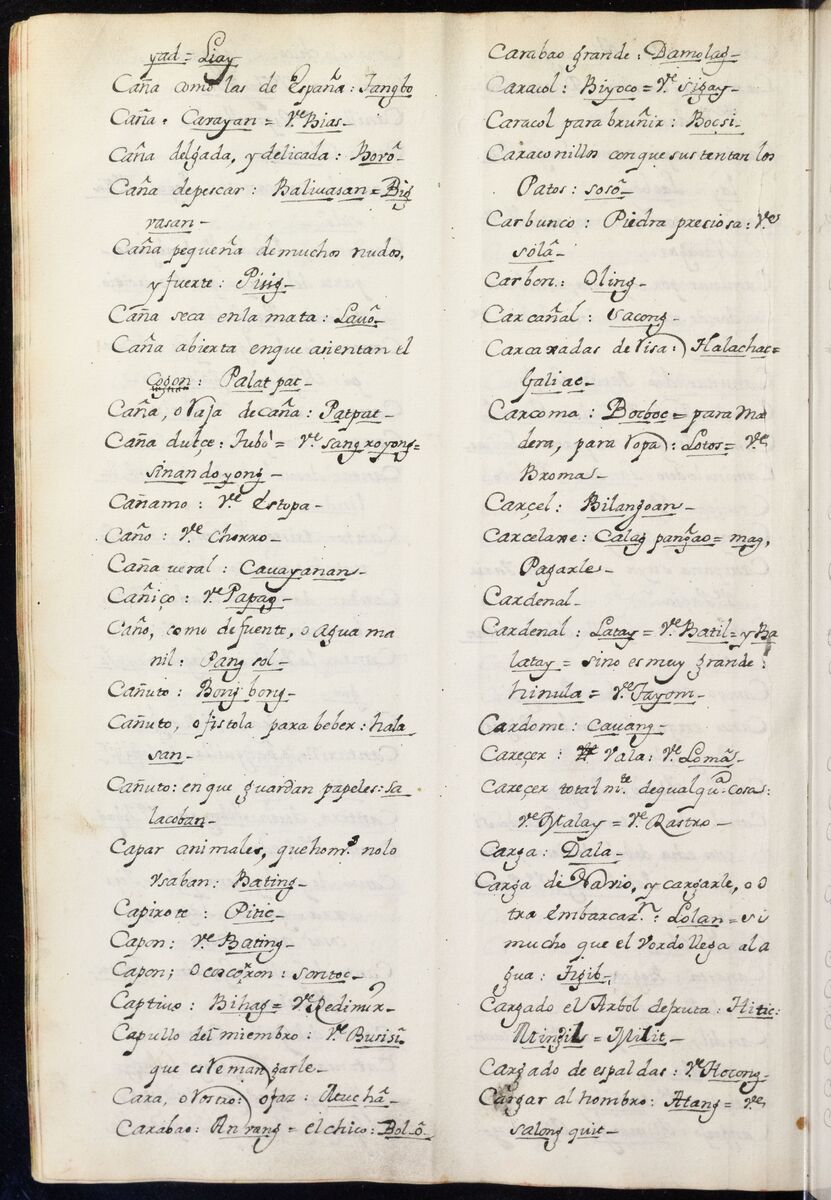 yad = Liay
Caña como las de España: Tangbo
Caña. Carayan = Vᵉ Bias_
Caña delgada, y delicada: Borõ_
Caña depescar: Baliuasan = Big
uasan_
Caña pequeña demuchos nudos,
y fuerte: Pisig_
Caña seca enla mata: Lauõ_
Caña abierta enque asientan el
Cogon: Palat pat_
Caña, o Raja de caña: Patpat_
Caña dulçe: Tubò = Vᵉ sangroyong=
sinandoyong_
Cañamo: Vᵉ Estopa_
Caño: Vᵉ Chorro_
Caña ueral: Cauayanan_
Cañiço: Vᵉ Papag_
Caño, como defuente, o agua ma
nil: Pang sol_
Cañuto: Bong bong_
Cañuto, o fistola para beber: hala
san_
Cañuto: en que guardan papeles: sa
lacoban_
Capar animales, que homˢ nolo
Vsaban: Bating_
Capirote: Pitic_
Capon: Vᵉ Bating_
Capon; O coscorron: sontoc_
Captiuo: Bihag = Vᵉ Redimir_
Capullo del miembro: Vᵉ Burisĩ
que es Remangarle_
Cara, o Rostro: o faz: Muchã_
Carabao: An uang = el chico: Bolõ_
Carabao grande: Damolag_
Caracol: Biyoco = Vᵉ sigay_
Caracol para bruñir: Bocsi_
Caraconillos conque sustentan los
Patos: sosõ_
Carbunco: Piedra presiosa: Vᵉ
solã_
Carbon: Oling_
Carcañal: Sacong_
Carcaxadas de Risa: Halachac=
Galiac_
Carcoma: Bocboc = para Ma
dera, para Ropa: Lotos = Vᵉ
Broma_
Carçel: Bilangoan_
Carcelaxe: Calag pangao = mag,
Pagarle_
Cardenal_
Cardenal: Latay = Vᵉ Batil = y Ba
latay = sino es muy grande:
hinula = Vᵉ Tayom_
Cardome: Cauang_
Careçer: Vala: Vᵉ Lomã_
Careçer total mᵗᵉ dequalqᵃ cosa:
Vᵉ Malay = Vᵉ Rastro_
Carga: Dala_
Carga de Navio, y cargarle, o O
tra Embarcazⁿ: Lolan = si
mucho que el Vordo llega al a
gua: Ingib_
Cargado el Arbol defruta: Hitic:
Mingil = Milit_
Cargado de espaldas: Vᵉ Hocong_
Cargar al hombro: Atang = Vᵉ
salong quit_